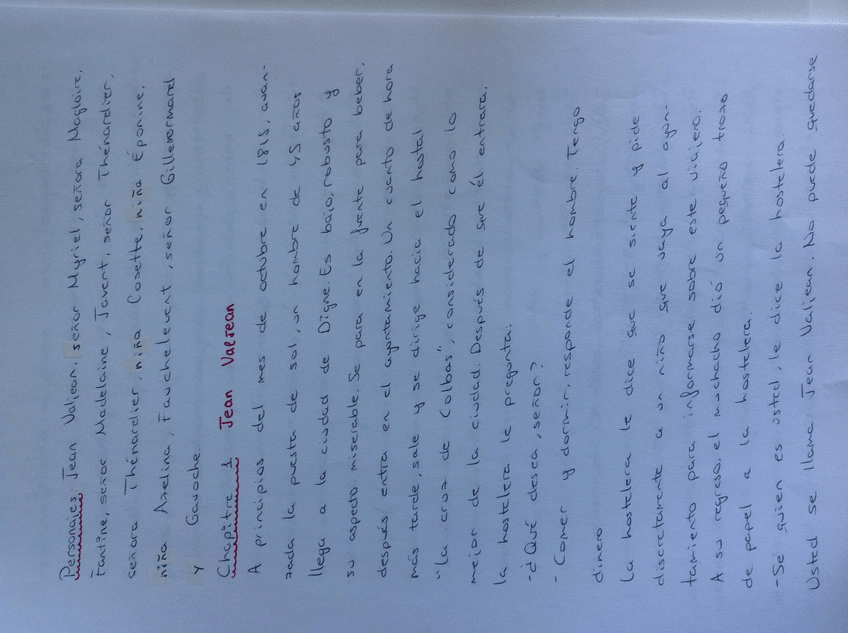 Personajes: Jean Valjean, señor Myriel, señora Magloire,
Fantine, señor Madelaine, Javert, señor Thénardier,
señora Thénardier, niña Cosette, niña Éponine,
niña Azelina, Fauchelevent, señor Gillenormand
y Gavoche
Chapitre 1 Jean Valjean
A principios del mes de octubre en 1815, avan-
zada la puesta de sol, un hombre de 45 años
llega a la ciudad de Digne. Es bajo, robusto y
su aspecto miserable. Se para en la fuente para beber,
después entra en el ayuntamiento. Un cuarto de hora
más tarde, sale y se dirige hacia el hostal
"La cruz de Colbas", considerado como lo
mejor de la ciudad. Después de que él entrara,
la hostelera le pregunta:
-¿Qué desea, señor?
- Comer y dormir, responde el hombre. Tengo
dinero
La hostelera le dice que se siente y pide
discretamente a un niño que vaya al ayun-
tamiento para informarse sobre este viajero.
A su regreso, el muchacho dió un pequeño trozo
de papel a la hostelera.
-Se quien es usted, le dice la hostelera.
Usted se llama Jean Valjean. No puede quedarse